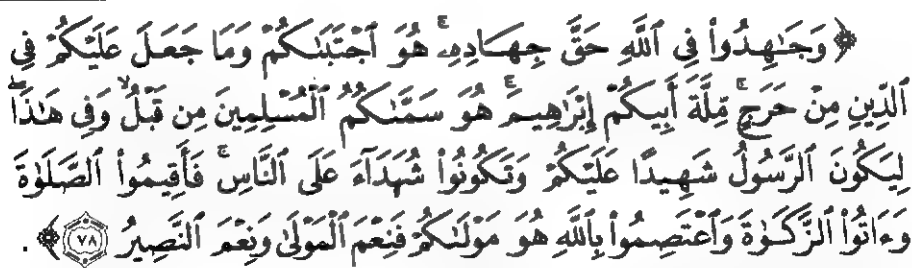 ﴿ وَجَٰهِدُوا۟ فِى ٱللَّهِ حَقَّ جِهَادِهِۦ ۚ هُوَ ٱجْتَبَىٰكُمْ وَمَا جَعَلَ عَلَيْكُمْ فِى
ٱلدِّينِ مِنْ حَرَجٍ ۚ مِّلَّةَ أَبِيكُمْ إِبْرَٰهِيمَ ۚ هُوَ سَمَّىٰكُمُ ٱلْمُسْلِمِينَ مِن قَبْلُ وَفِى هَٰذَا
لِيَكُونَ ٱلرَّسُولُ شَهِيدًا عَلَيْكُمْ وَتَكُونُوا۟ شُهَدَآءَ عَلَى ٱلنَّاسِ ۚ فَأَقِيمُوا۟ ٱلصَّلَوٰةَ
وَءَاتُوا۟ ٱلزَّكَوٰةَ وَٱعْتَصِمُوا۟ بِٱللَّهِ هُوَ مَوْلَىٰكُمْ فَنِعْمَ ٱلْمَوْلَىٰ وَنِعْمَ ٱلنَّصِيرُ ٧٨ ﴾ .